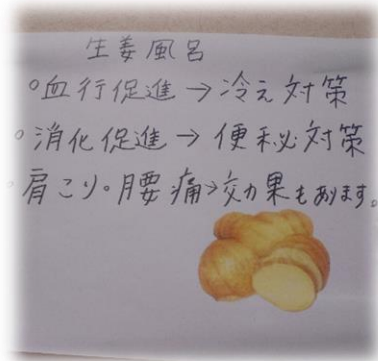 生姜風呂
○血行促進→冷え対策
○消化促進→便秘対策
○肩こり。腰痛→効果もあります。